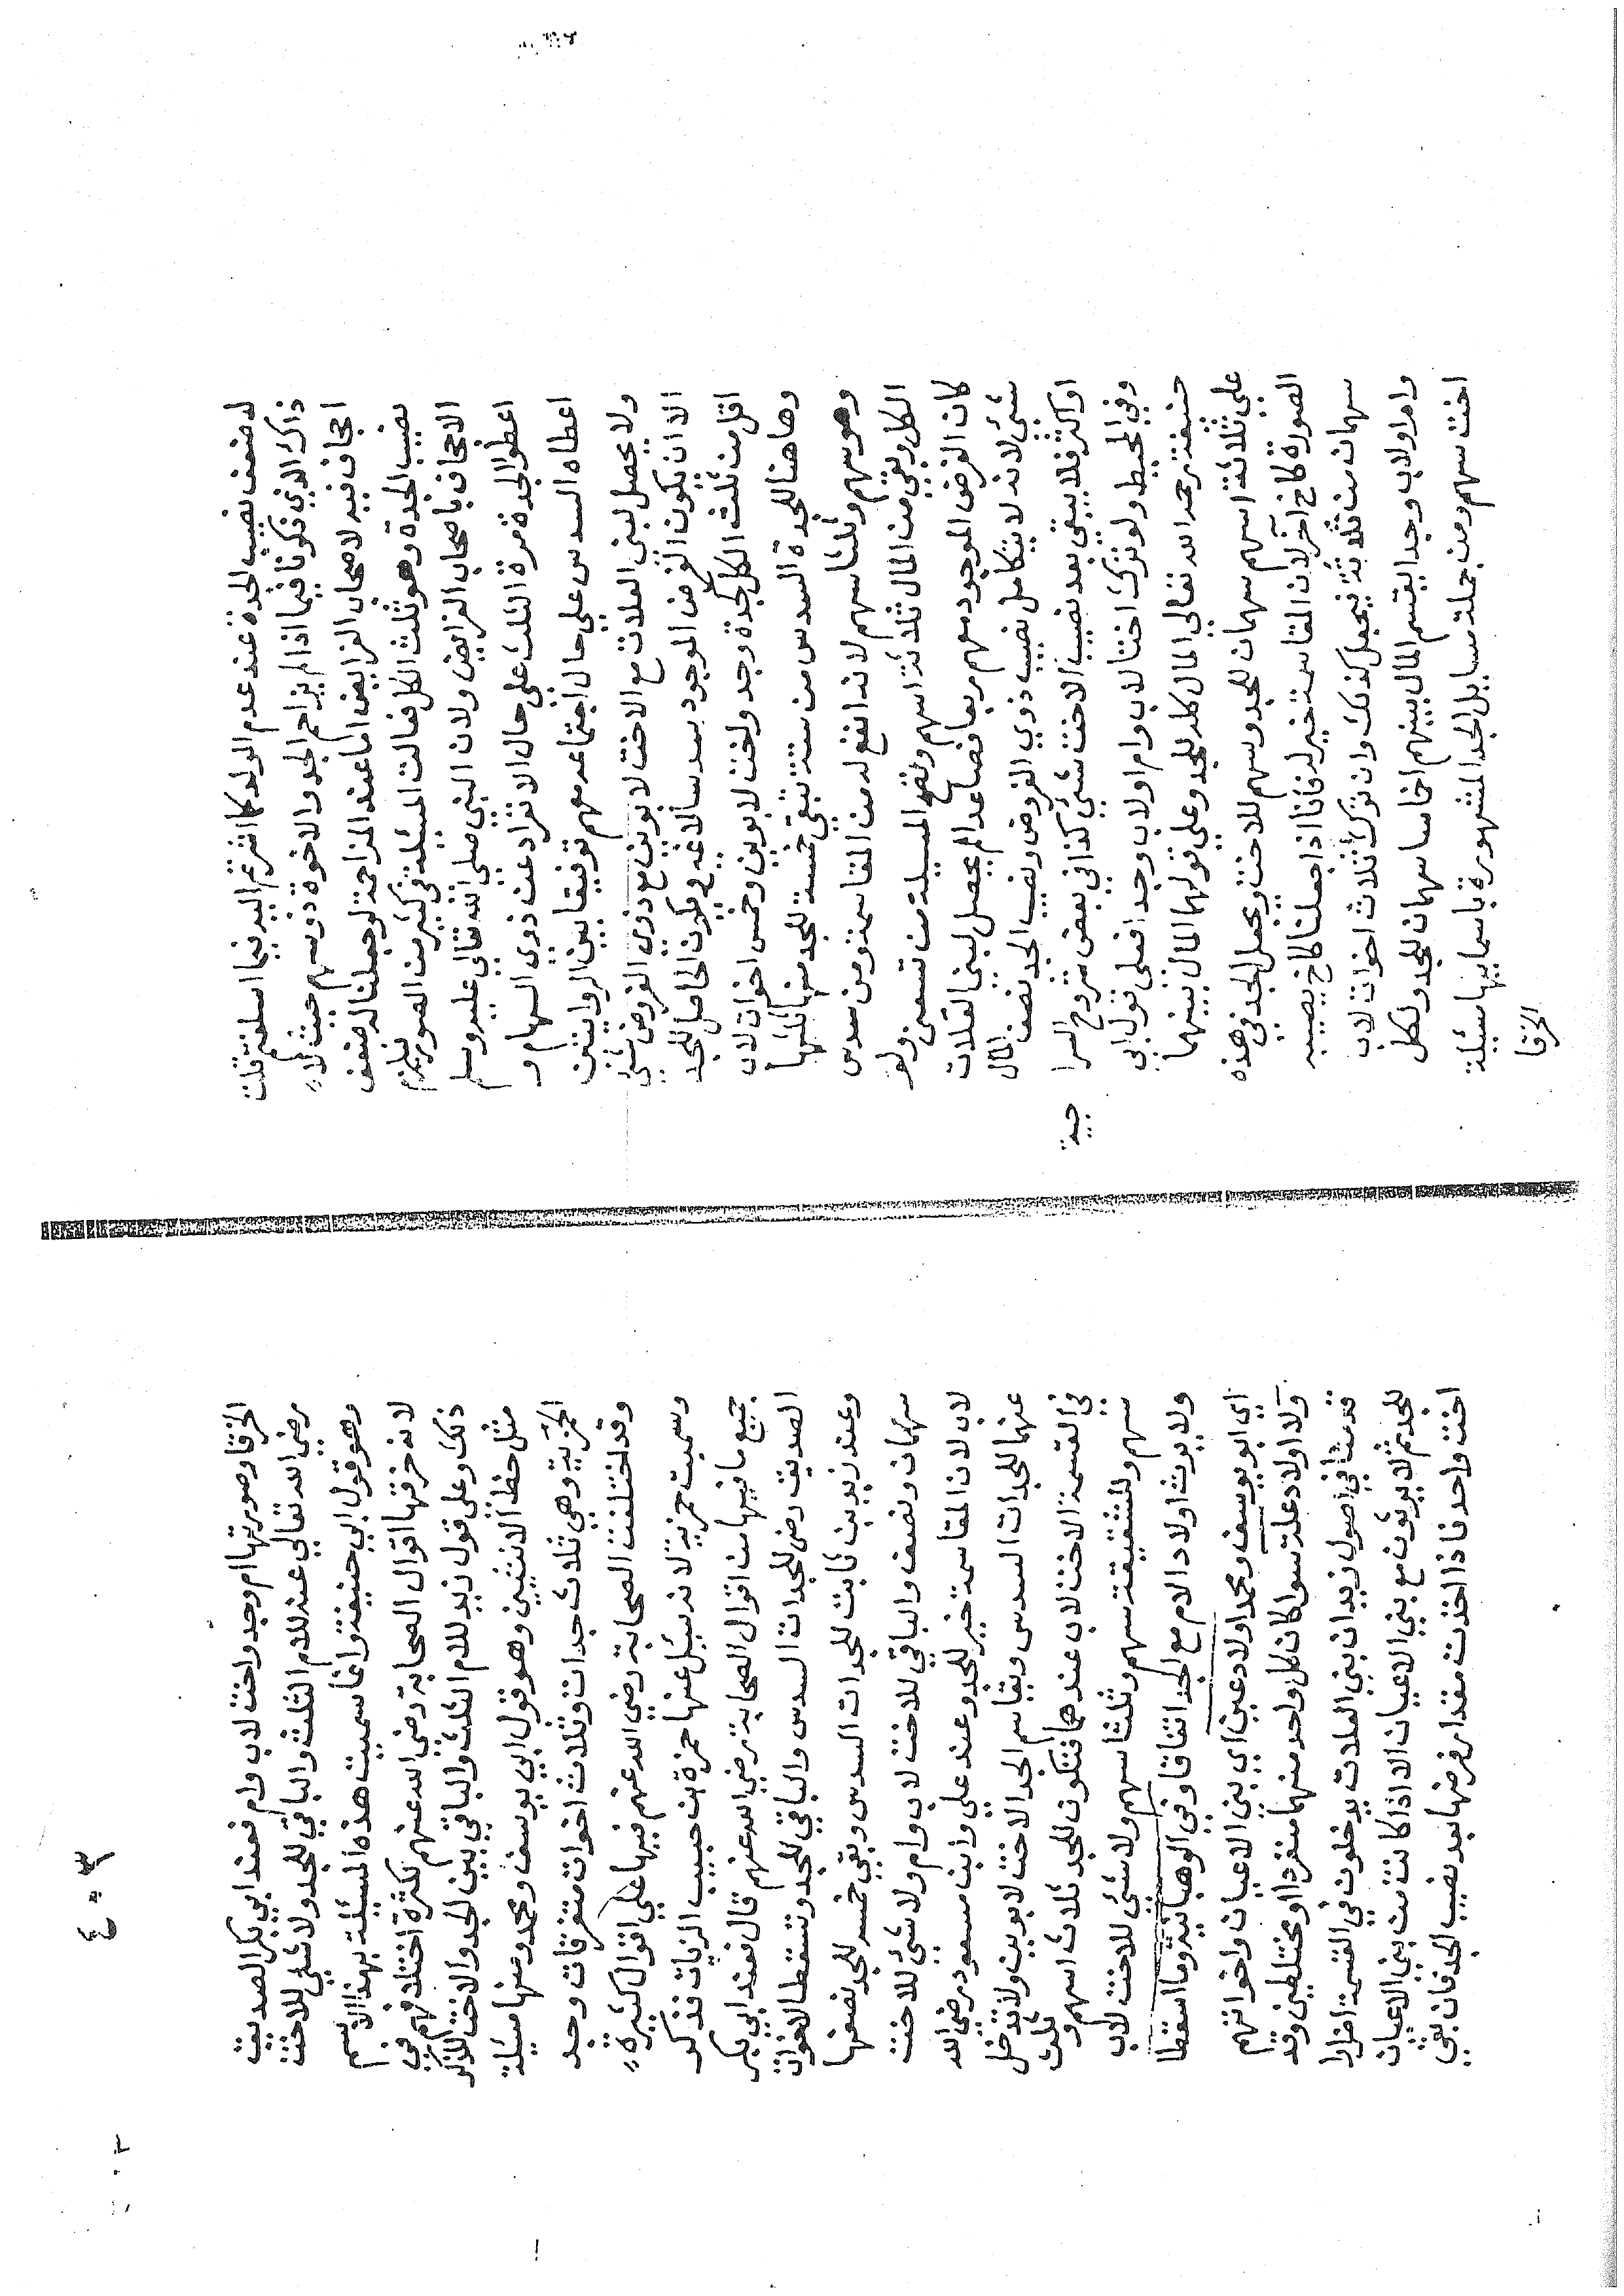 له ضعف نصيب الجدة عند عدم الولد كما اشرتم اليه فيما اسلفتم قلت
ذاك الذي ذكرنا فيما اذا لم يزاحم الجد والاخوة ذو سهم حيث لا
اجحاف فيه لاصحاب الفرايض اما عند المزاحمة لو جعلنا له ضعف
نصيب الجدة وهو ثلث الكل فعالت المسئلة في كثير من الصور فيلزم
الاجحاف باصحاب الفرايض ولان النبي صلى الله تعالى عليه وسلم
اعطى الجدة مرة الثلث على حال الانفراد عن ذوي السهام و
اعطاه السدس على حال اجتماعه معهم توفيقا بين الروايتين
ولا يحصل لبني العلات مع الاخت لابوين مع ذوي الفروض شئ
الا ان يكون الفرض الموجود سدسا لا غير فيكون الحاصل للجد
اقل من ثلث الكل كجدة وجد واخت لابوين وخمس اخوات لاب
وها هنا للجدة السدس من ستة تبقي خمسة للجد منها ثلثها
وهو سهم وثلثا سهم لانه انفع له من المقاسمة ومن سدس
الكل وبقي من المال ثلاثة اسهم وتصح المسيلة من تسعى ولو
كان الفرض الموجود معهم ربعا فصاعدا لم يحصل لبني العلات
شئ لانه لا يتكامل نصيب ذوي الفروض ونصيب الجد نصف المال
او اكثر فلا يبقى بعد نصيب الاخت شئ كذا في بعض شروح السرا
جية
وفي المحيط ولو ترك اختا لاب وام او لاب وجدا فعلى قول ابي
حنيفة رحمه الله تعالى المال كله للجد وعلى قولهما المال بينهما
على ثلاثة اسهم سهمان للجد وسهم للاخت ويجعل الجد في هذه
الصورة كاخ آخر لان المقاسمة خير له فانا اذا جعلنا كاخ يصيبه
سهمان من ثلاثة فيجعل كذلك وان ترك ثلاث اخوات لاب
وام او لاب وجدا يقسم المال بينهم اخماسا سهمان للجد ولكل
اخت سهم ومن جملة مسايل الجد المشهورة باسمايها مسئيلة
الخرقا
الخرقا وصورتها ام وجد واخت لاب وام فعند ابي بكر الصديق
رضي الله تعالى عنه للام الثلث والباقي للجد ولا شئي للاخت
وهو قول ابي حنيفة وانما سميت هذه المسيلة بهذا الاسم
لانه خرقها اقوال الصحابة رضي الله عنهم لكثرة اختلافهم في
ذلك وعلى قول زيد للام الثلث والباقي بين الجد والاخت للذكر
مثل حظ الانثيين وهو قول ابي يوسف ومحمد ومنها مسئيلة
الحمزية وهي ثلاث جدات وثلاث اخوات متفرقات وجد
وقد اختلفت الصحابة رضي الله عنهم فيها على اقوال كثيرة
وسميت حمزية لانه سئل عنها حمزة بن حبيب الزيات فذكر
جميع ما فيها من اقوال الصحابة رضي الله عنهم قال فعند ابي بكر
الصديق رضى للجدات السدس والباقي للجد وتسقط الاخوات
وعند زيد بن ثابت للجدات السدس وبقي خمسه للجد نصفها
سهمان ونصف والباقي للاخت لاب وام ولا شئ للاخت
لاب لان المقاسمة خير للجد وعند علي وابن مسعود رضى الله
عنهما للجدات السدس ويقاسم الجد الاخت لابوين ولا تدخل
في القسمة الاخت لاب عندهما فتكون للجد ثلاث اسهم و ثلث
سهم وللشقيقة سهم وثلثا سهم ولا شئي للاخت لاب
ولا يورث اولاد الام مع الجد اتفاقا وفي الوهبانية وما اسقطا
اي ابو يوسف ومحمد اولاد عين اي بني الاعيان واخواتهم
ولا اولاد علة سوا كان كل واحد منهما منفردا او مختلطين وقد
قدمنا في اصول زيد ان بني العلات يدخلون في القسمة اضرارا
للجد ثم لا يرثون مع بني الاعيان الا اذا كانت من بني الاعيان
اخت واحد فاذا اخذت مقدار فرضها بعد نصيب الجد فان بقي